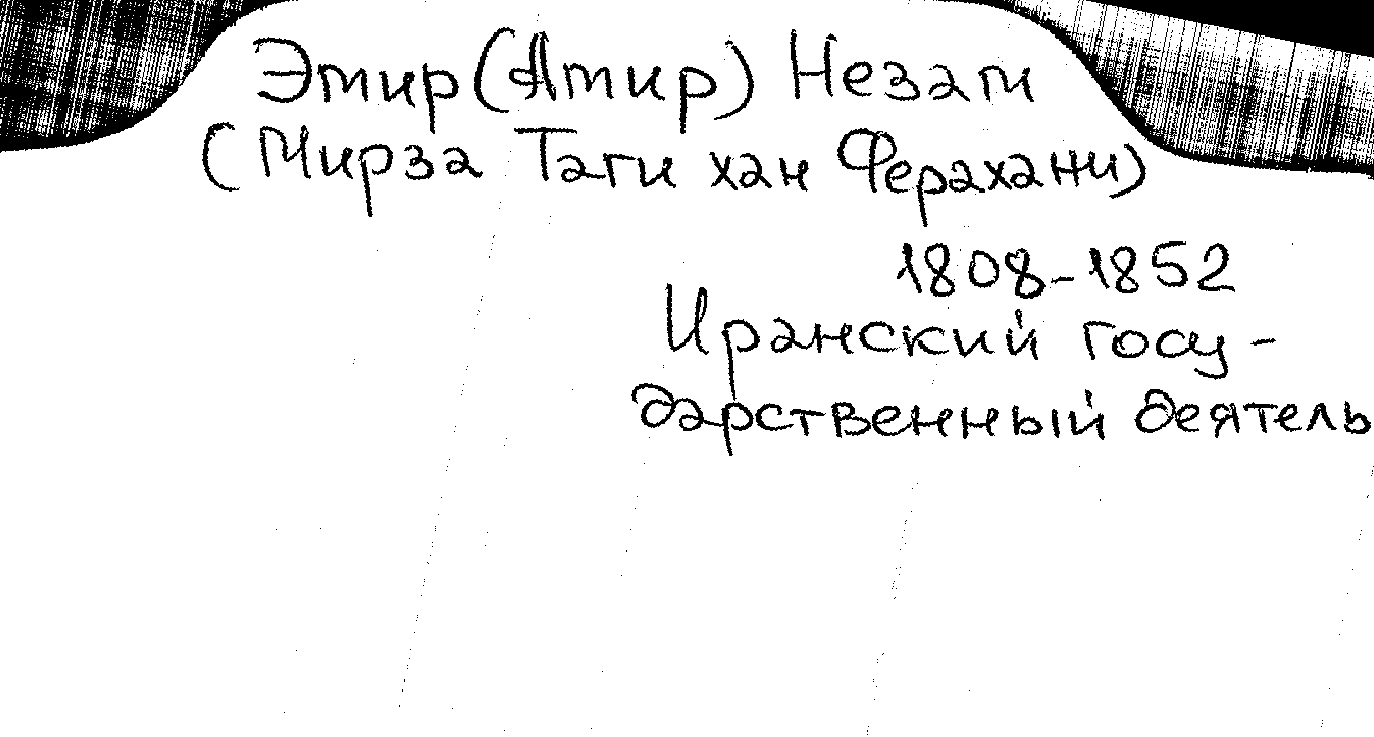 Эмир (Амир) Незам
(Мирза Таги хан Ферахани)
1808-1852
Иранский госу-
дарственный деятель